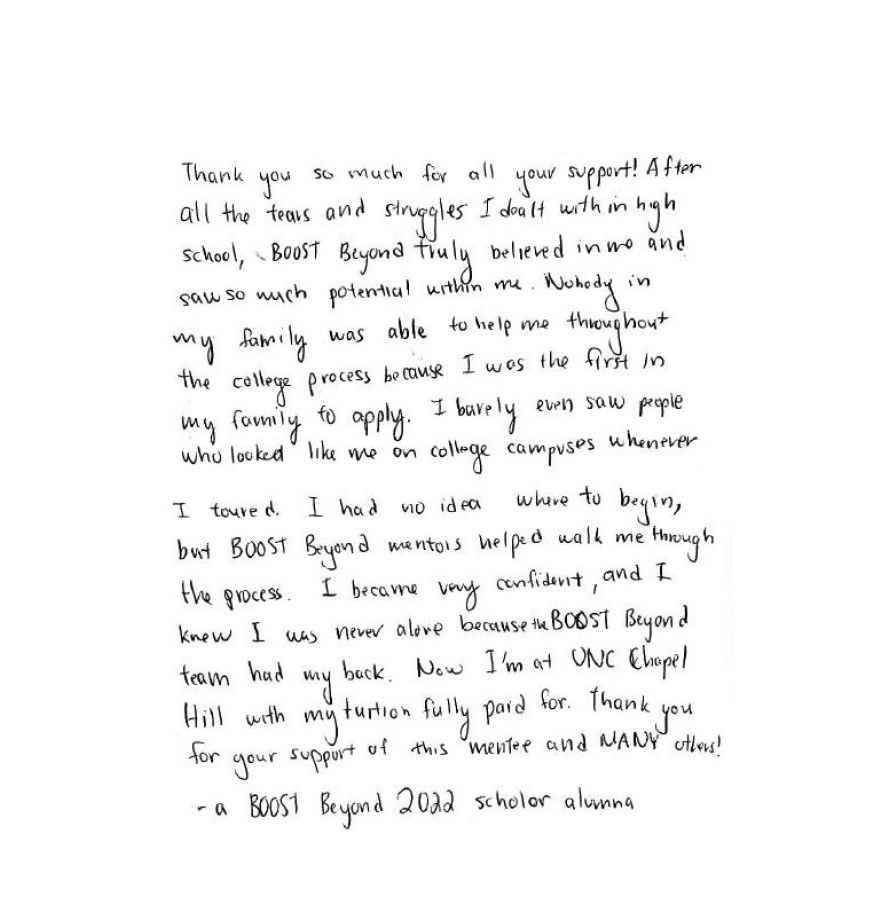 Thank you so much for all your support! After
all the tears and struggles I dealt with in high
school, BOOST Beyond truly believed in me and
saw so much potential within me. Nobody in
my family was able to help me throughout
the college process because I was the first in
my family to apply. I barely even saw people
who looked like me on college campuses whenever
I toured. I had no idea where to begin,
but BOOST Beyond mentors helped walk me through
the process. I became very confident, and I
knew I was never alone because the BOOST Beyond
team had my back. Now I'm at UNC Chapel
Hill with my tuition fully paid for. Thank you
for your support of this mentee and MANY others!
- a BOOST Beyond 2022 scholar alumna